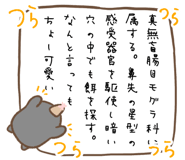 つら
つら
真無盲腸目モグラ科に
属する。鼻先の星型の
感受器官を駆使し暗い
穴の中でも餌を探す。
なんと言っても
ちょー可愛い
つら
つら